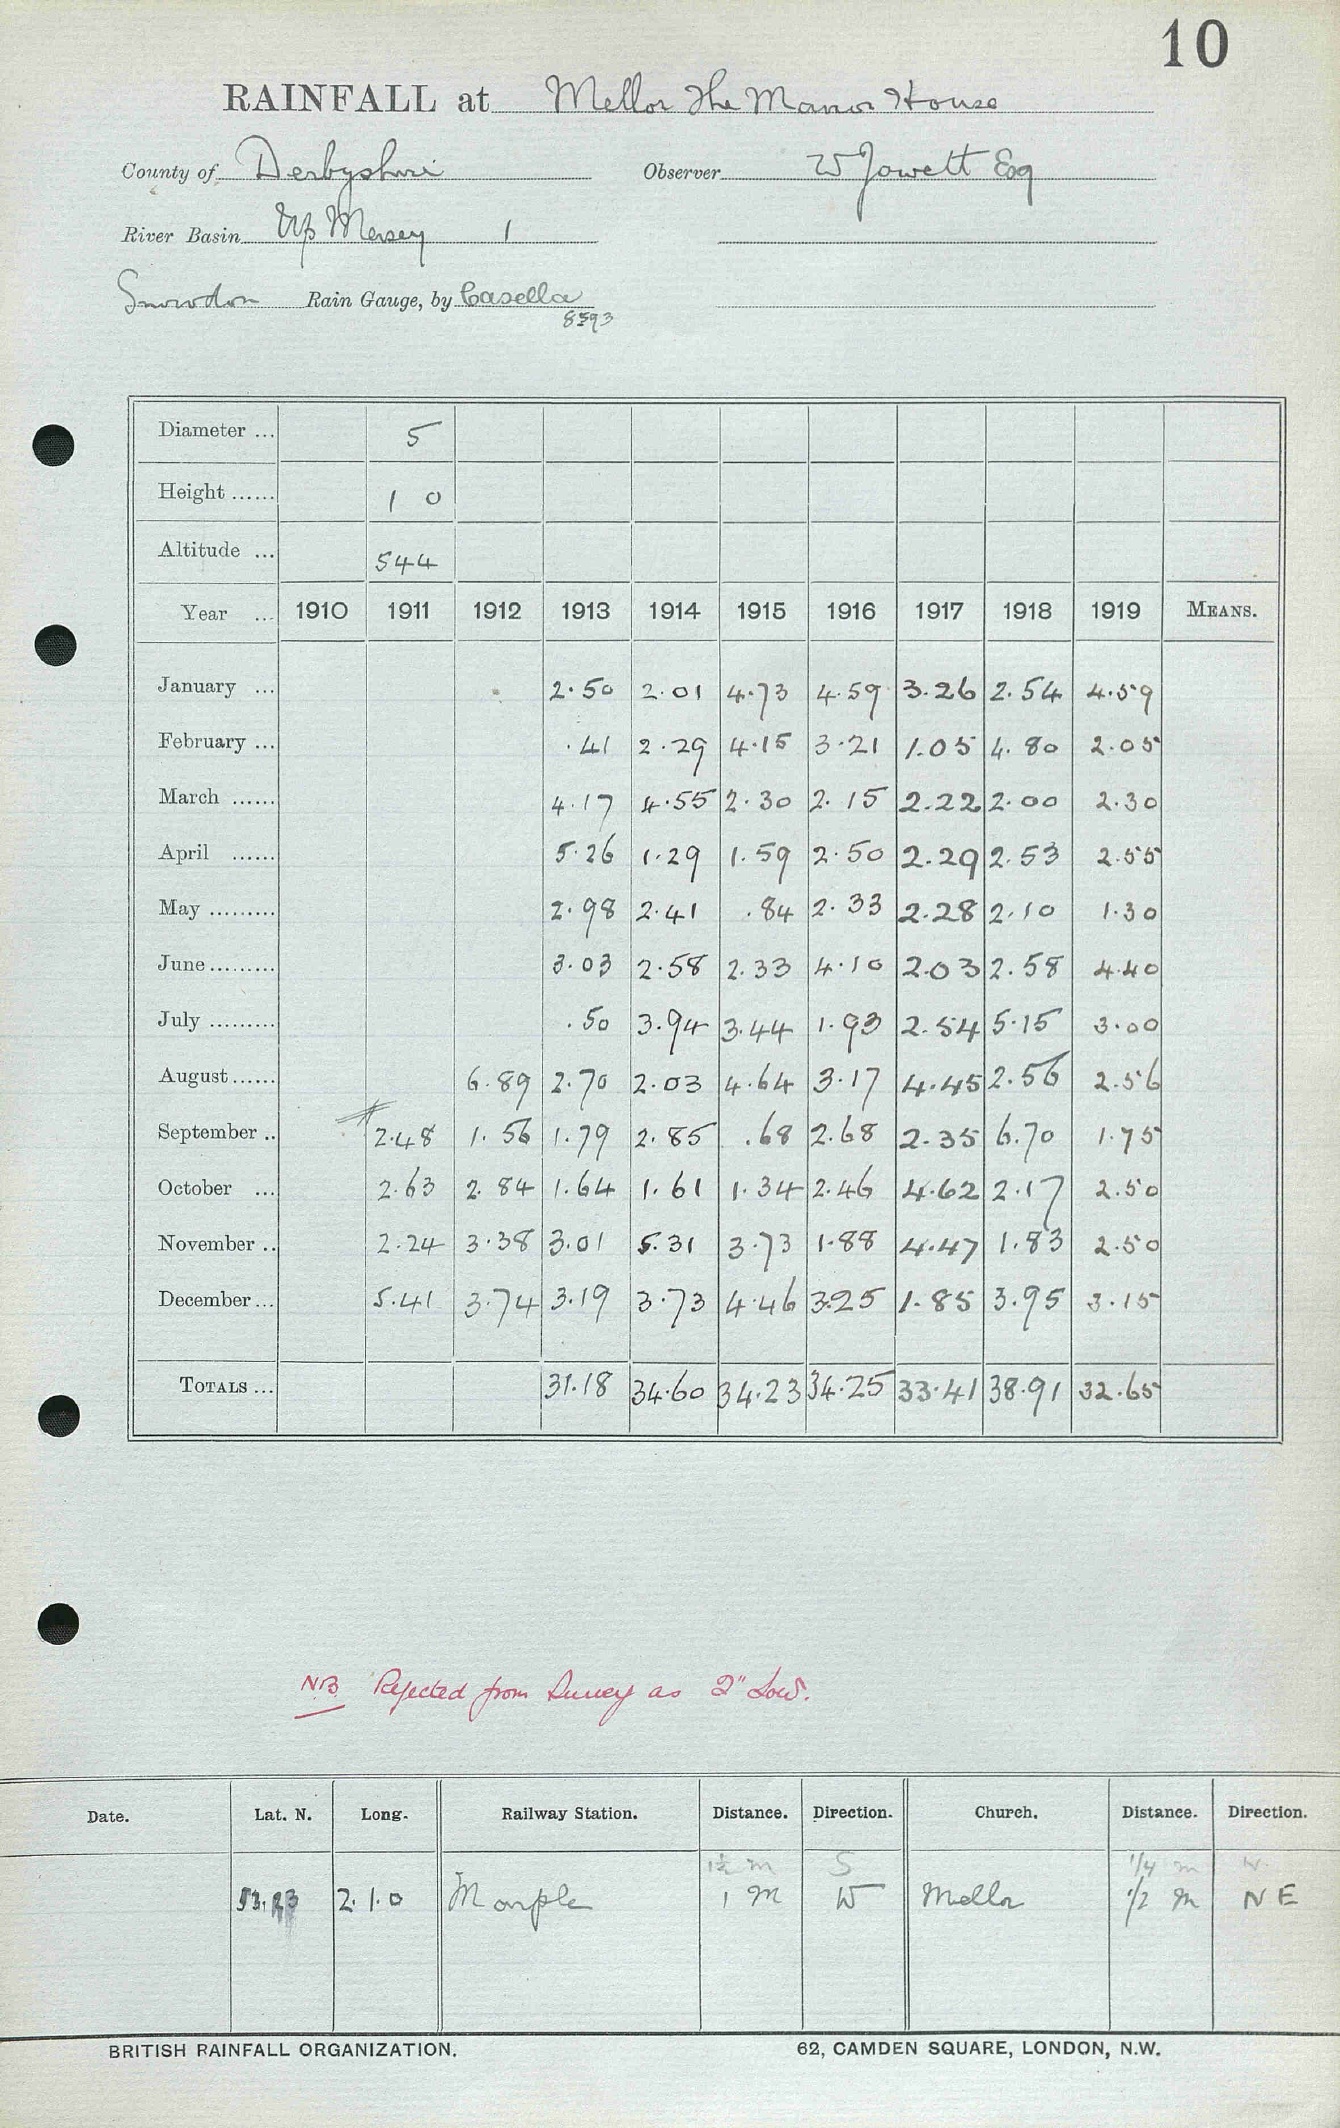 10
RAINFALL at Mellor The Manor House
County of Derbyshire Observer W Jowett Esq
River Basin Up Mersey 1
Snowdon Rain Gauge, by Casella
8593
Diameter ... 5
Height ...... 1 0
Altitude ... 544
Year ... 1910 1911 1912 1913 1914 1915 1916 1917 1918 1919 MEANS.
January ... 2.50 2.01 4.73 4.59 3.26 2.54 4.59
February ... .41 2.29 4.15 3.21 1.05 4.80 2.05
March ...... 4.17 4.55 2.30 2.15 2.22 2.00 2.30
April ...... 5.26 1.29 1.59 2.50 2.29 2.53 2.55
May ......... 2.98 2.41 .84 2.33 2.28 2.10 1.30
June ......... 3.03 2.58 2.33 4.10 2.03 2.58 4.40
July ......... .50 3.94 3.44 1.93 2.54 5.15 3.00
August ...... 6.89 2.70 2.03 4.64 3.17 4.45 2.56 2.56
September .. 2.48 1.56 1.79 2.85 .68 2.68 2.35 6.70 1.75
October ... 2.63 2.84 1.64 1.61 1.34 2.46 4.62 2.17 2.50
November .. 2.24 3.38 3.01 5.31 3.73 1.88 4.47 1.83 2.50
December ... 5.41 3.74 3.19 3.73 4.46 3.25 1.85 3.95 3.15
TOTALS ... 31.18 34.60 34.23 34.25 33.41 38.91 32.65
NB Rejected from Survey as 2" Low.
Date. Lat. N. Long. Railway Station. Distance. Direction. Church. Distance. Direction.
1½ m S 1/4 m N.
53.23 2.1.0 Marple 1 m W Mellor 1/2 m NE
BRITISH RAINFALL ORGANIZATION. 62, CAMDEN SQUARE, LONDON, N.W.